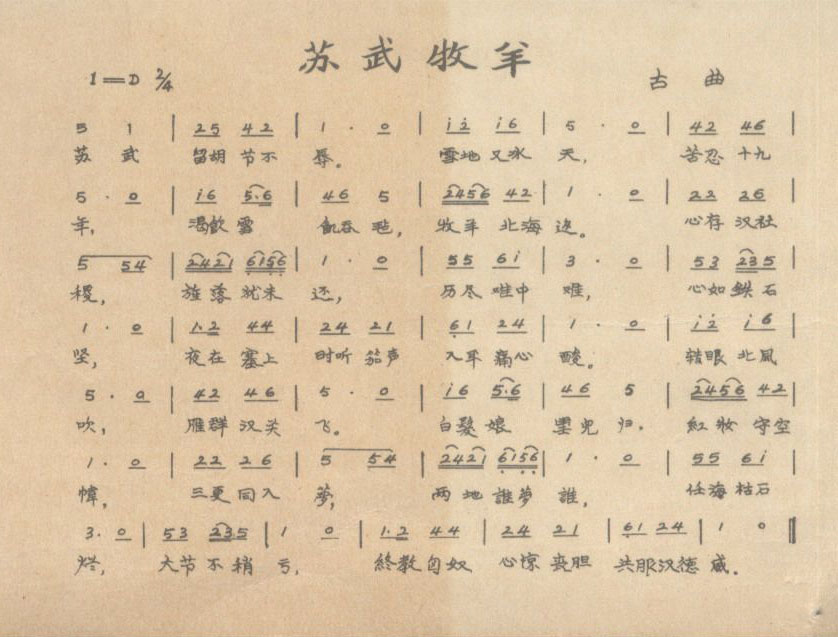 苏武牧羊
1=D 2/4 古曲
5 1 | 25 42 | 1 · 0 | i2 i6 | 5 · 0 | 42 46 |
苏武 留胡节不 辱。 雪地又冰 天, 苦忍十九
5 · 0 | i6 5·6 | 46 5 | 2456 42 | 1 · 0 | 22 26 |
年, 渴飲雪 飢吞毡, 牧羊北海边。 心存汉社
5 54 | 2421 6156 | 1 · 0 | 55 6i | 3 · 0 | 53 235 |
稷, 旌落就未还, 历尽难中难, 心如鉄石
1 · 0 | 1·2 44 | 24 21 | 61 24 | 1 · 0 | i2 i6 |
坚, 夜在塞上 时听笳声 入耳痛心 酸。 转眼北風
5 · 0 | 42 46 | 5 · 0 | i6 5·6 | 46 5 | 2456 42 |
吹, 雁群汉关 飞。 白髮娘 兒归. 紅妝守空
1 · 0 | 22 26 | 5 54 | 2421 6156 | 1 · 0 | 55 6i |
幃, 三更同入 夢, 两地誰梦誰, 任海枯石
3 · 0 | 53 235 | 1 0 | 1·2 44 | 24 21 | 61 24 | 1 0 ‖
烂, 大节不稍亏, 終教匈奴 心惊丧胆 共服汉德威.